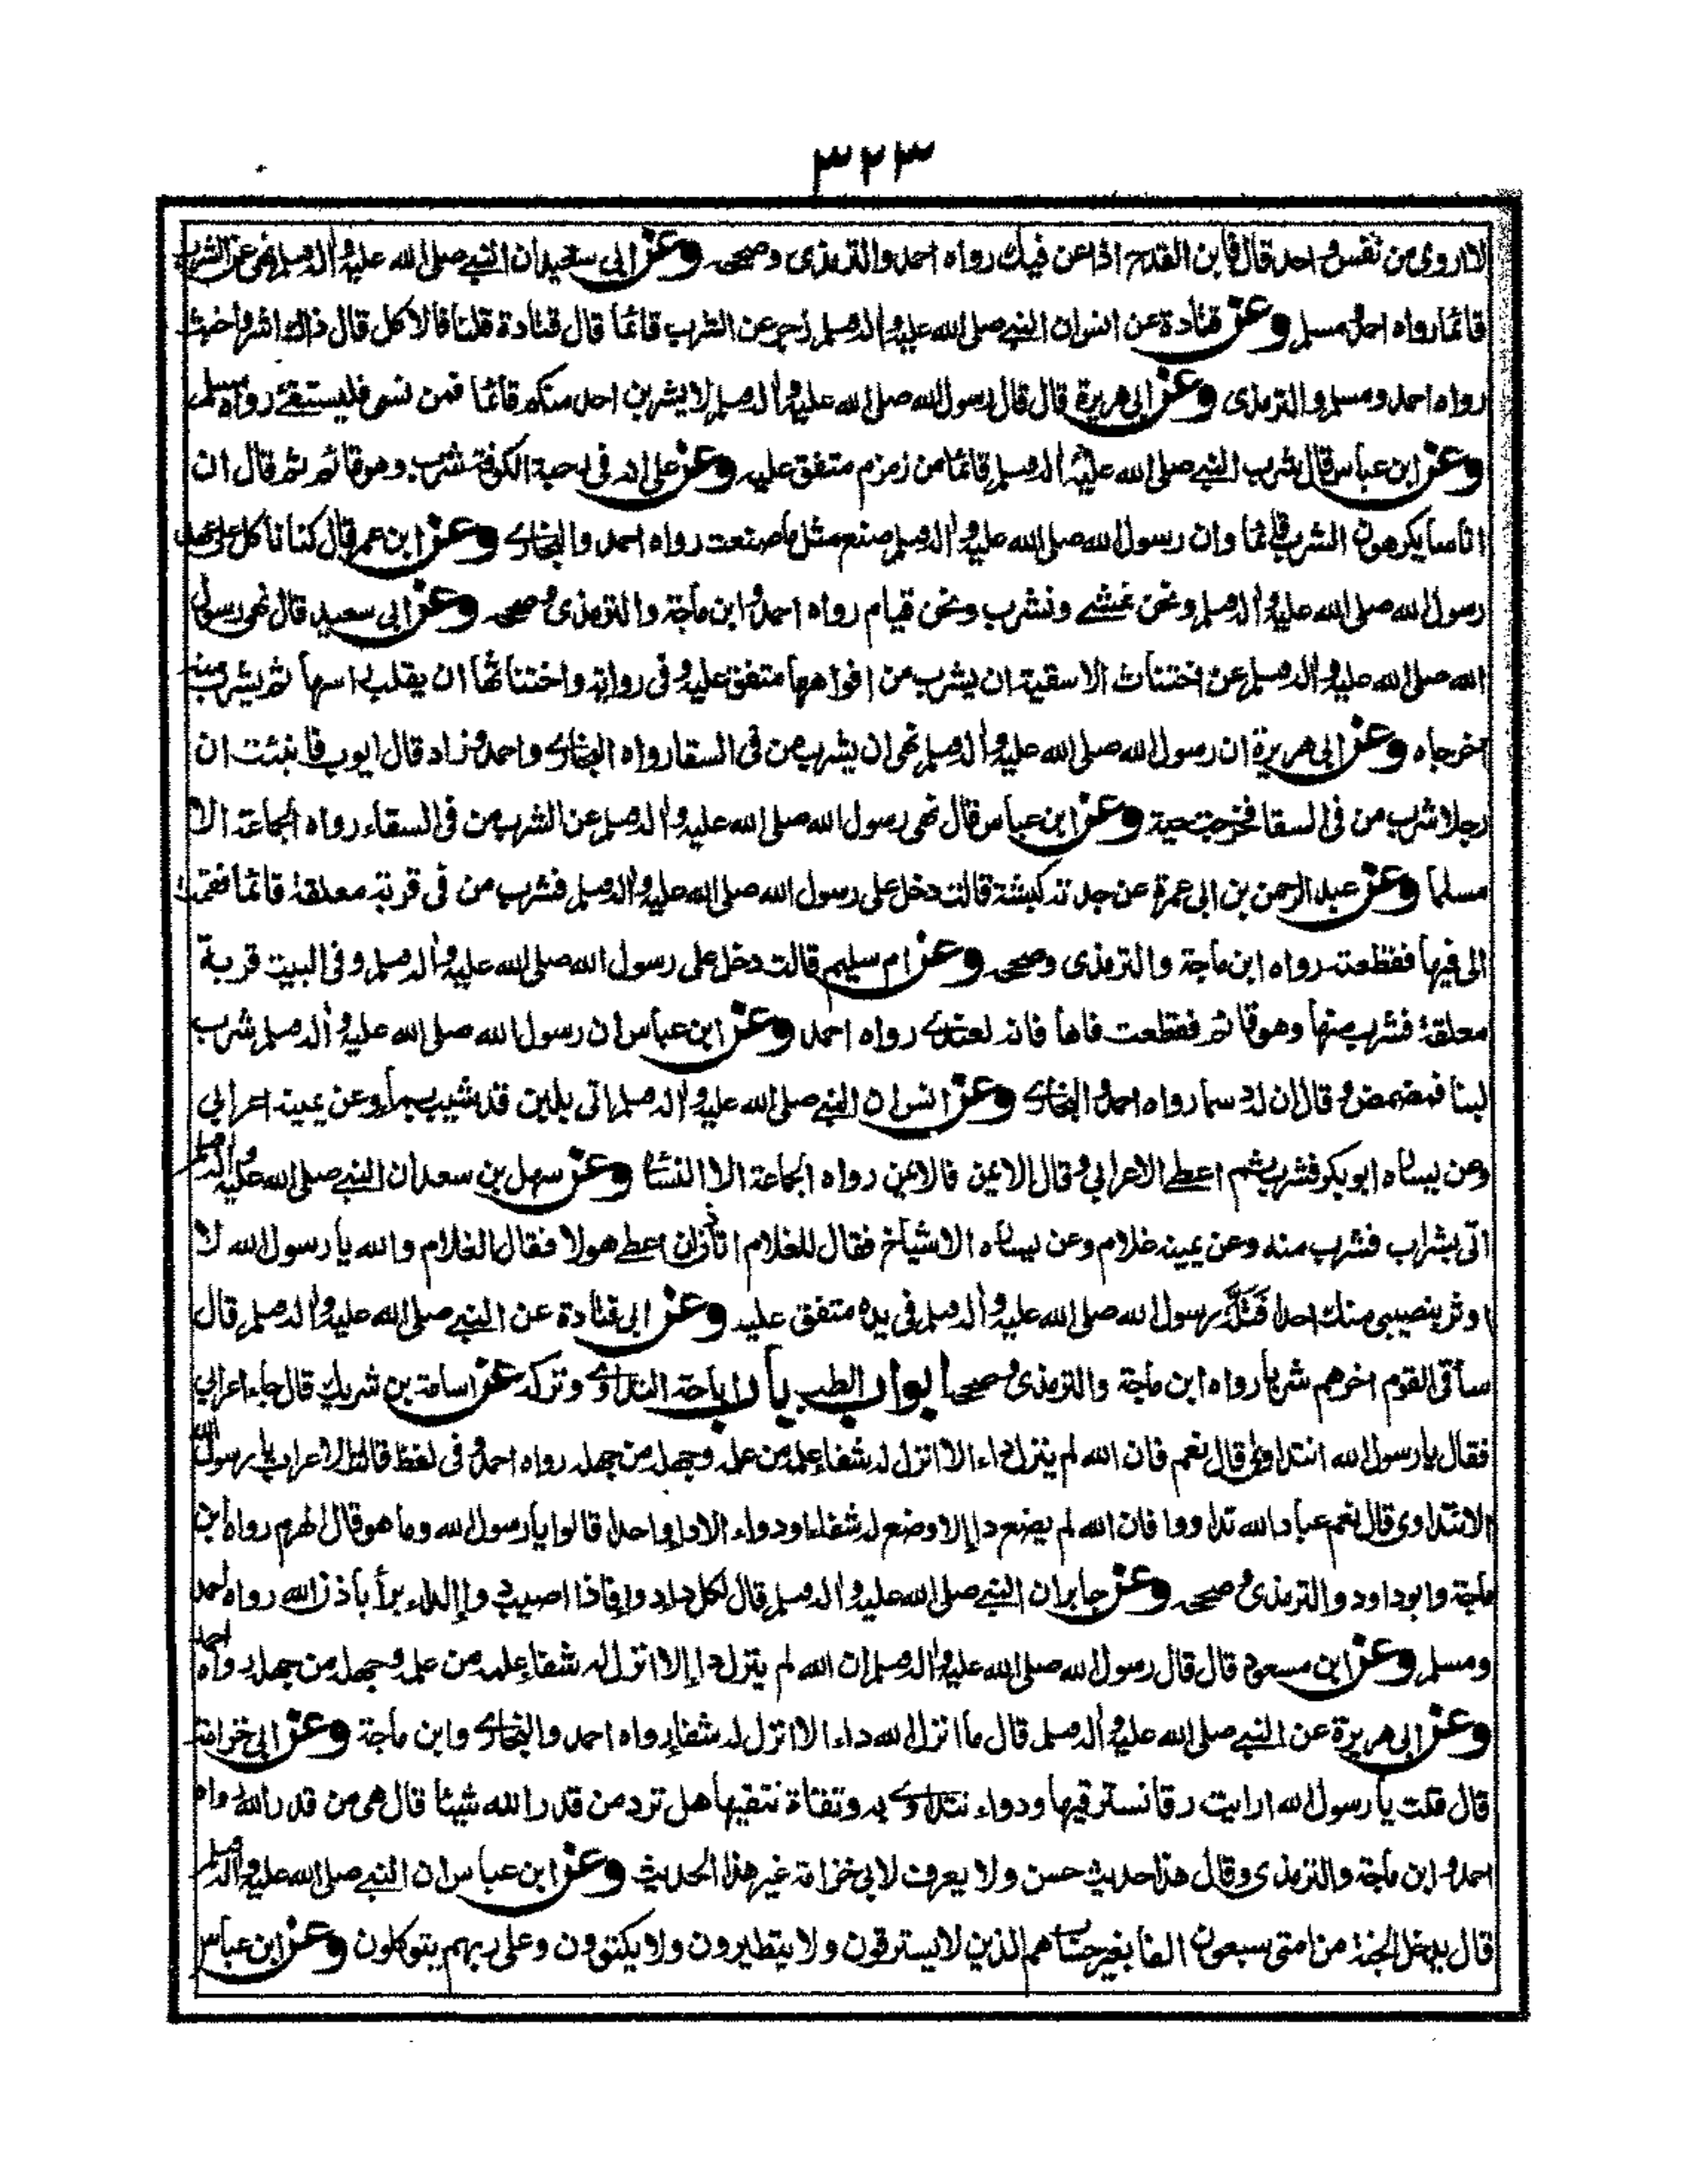 ٣٢٣
لا اروى من نفس واحد قال فابن القدح اذا عن فيك رواه احمد والترمذى وصححه وعن ابى سعيد ان النبى صلى الله عليه واله وسلم نهى عن الشرب
قائما رواه احمد ومسلم وعن قتادة عن انس ان النبى صلى الله عليه واله وسلم زجر عن الشرب قائما قال قتادة قلنا فالاكل قال ذاك اشر واخبث
رواه احمد ومسلم والترمذى وعن ابى هريرة قال قال رسول الله صلى الله عليه واله وسلم لا يشربن احد منكم قائما فمن نسى فليستقئ رواه مسلم
وعن ابن عباس قال شرب النبى صلى الله عليه واله وسلم قائما من زمزم متفق عليه وعن على انه فى رحبة الكوفة شرب وهو قائم ثم قال ان
اناسا يكرهون الشرب قائما وان رسول الله صلى الله عليه واله وسلم صنع مثل ما صنعت رواه احمد والبخارى وعن ابن عمر قال كنا ناكل على عهد
رسول الله صلى الله عليه واله وسلم ونحن نمشى ونشرب ونحن قيام رواه احمد وابن ماجة والترمذى وصححه وعن ابى سعيد قال نهى رسول
الله صلى الله عليه واله وسلم عن اختناث الاسقية ان يشرب من افواهها متفق عليه وفى رواية واختناثها ان يقلب راسها ثم يشرب منه
اخرجاه وعن ابى هريرة ان رسول الله صلى الله عليه واله وسلم نهى ان يشرب من فى السقا رواه البخارى واحمد وزاد قال ايوب فانبئت ان
رجلا شرب من فى السقا فخرجت حية وعن ابن عباس قال نهى رسول الله صلى الله عليه واله وسلم عن الشرب من فى السقاء رواه الجماعة الا
مسلما وعن عبد الرحمن بن ابى عمرة عن جدته كبشة قالت دخل على رسول الله صلى الله عليه واله وسلم فشرب من فى قربة معلقة قائما فقمت
الى فيها فقطعته رواه ابن ماجة والترمذى وصححه وعن ام سليم قالت دخل على رسول الله صلى الله عليه واله وسلم وفى البيت قربة
معلقة فشرب منها وهو قائم فقطعت فاها فانه لعندى رواه احمد وعن ابن عباس ان رسول الله صلى الله عليه واله وسلم شرب
لبنا فمضمض وقال ان له دسما رواه احمد والبخارى وعن انس ان النبى صلى الله عليه واله وسلم اتى بلبن قد شيب بماء وعن يمينه اعرابى
وعن يساره ابو بكر فشرب ثم اعطى الاعرابى وقال الايمن فالايمن رواه الجماعة الا النسائى وعن سهل بن سعد ان النبى صلى الله عليه واله وسلم
اتى بشراب فشرب منه وعن يمينه غلام وعن يساره الاشياخ فقال للغلام اتاذن ان اعطى هولا فقال الغلام والله يا رسول الله لا
اوثر بنصيبى منك احدا فَتَلَّه رسول الله صلى الله عليه واله وسلم فى يده متفق عليه وعن ابى قتادة عن النبى صلى الله عليه واله وسلم قال
ساقى القوم اخرهم شربا رواه ابن ماجة والترمذى وصححه ابواب الطب باب اباحة التداوى وتركه عن اسامة بن شريك قال جاء اعرابى
فقال يا رسول الله انتداوى قال نعم فان الله لم ينزل داء الا انزل له شفا علمه من علمه وجهله من جهله رواه احمد وفى لفظ قالت الاعراب يا رسول الله
الا نتداوى قال نعم عباد الله تداووا فان الله لم يضع داء الا وضع له شفاء او دواء الا داء واحدا قالوا يا رسول الله وما هو قال الهرم رواه ابن
ماجة وابو داود والترمذى وصححه وعن جابر ان النبى صلى الله عليه واله وسلم قال لكل داء دواء فاذا اصيب دواء الداء برأ باذن الله رواه احمد
ومسلم وعن ابن مسعود قال قال رسول الله صلى الله عليه واله وسلم ان الله لم ينزل داء الا انزل له شفاء علمه من علمه وجهله من جهله رواه احمد
وعن ابى هريرة عن النبى صلى الله عليه واله وسلم قال ما انزل الله داء الا انزل له شفاء رواه احمد والبخارى وابن ماجة وعن ابى خزامة
قال قلت يا رسول الله ارايت رقا نسترقيها ودواء نتداوى به وتقاة نتقيها هل ترد من قدر الله شيئا قال هى من قدر الله رواه
احمد وابن ماجة والترمذى وقال هذا حديث حسن ولا يعرف لابى خزامة غير هذا الحديث وعن ابن عباس ان النبى صلى الله عليه واله وسلم
قال يدخل الجنة من امتى سبعون الفا بغير حساب هم الذين لا يسترقون ولا يتطيرون ولا يكتوون وعلى ربهم يتوكلون وعن ابن عباس